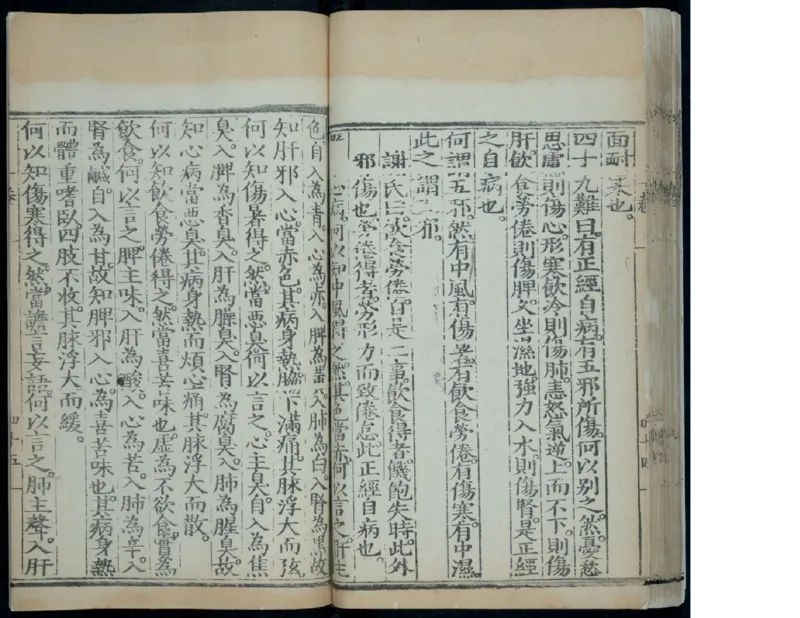 面耐寒也。
四十九難曰。有正經自病。有五邪所傷。何以别之。然。憂愁
思慮則傷心。形寒飲冷則傷肺。恚怒氣逆。上而不下。則傷
肝。飲食勞倦則傷脾。久坐濕地。強力入水則傷腎。是正經
之自病也。
何謂五邪。然。有中風。有傷暑。有飲食勞倦。有傷寒。有中濕。
此之謂五邪。
謝氏曰。飲食勞倦。自是二事。飲食得者。饑飽失時。此外
邪傷也。勞倦得者。勞形力而致倦怠。此正經自病也。
心病。何以知中風得之。然。其色當赤。何以言之。肝主
色。自入為青。入心為赤。入脾為黃。入肺為白。入腎為黑。故
知肝邪入心。當赤色。其病身熱。脇下滿痛。其脉浮大而弦
何以知傷暑得之。然。當惡臭。何以言之。心主臭。自入為焦
臭。入脾為香臭。入肝為臊臭。入腎為腐臭。入肺為腥臭。故
知心病當惡臭。其病身熱而煩。心痛。其脉浮大而散。
何以知飲食勞倦得之。然。當喜苦味也。虛為不欲食。實為
飲食。何以言之。脾主味。入肝為酸。入心為苦。入肺為辛。入
腎為鹹。自入為甘。故知脾邪入心。為喜苦味也。其病身熱
而體重嗜臥。四肢不收。其脉浮大而緩。
何以知傷寒得之。然。當譫言妄語。何以言之。肺主聲。入肝
卷
四十五